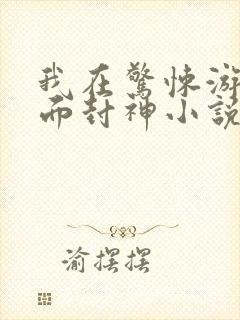 我在驚悚游
而封神小說
渝摆摆